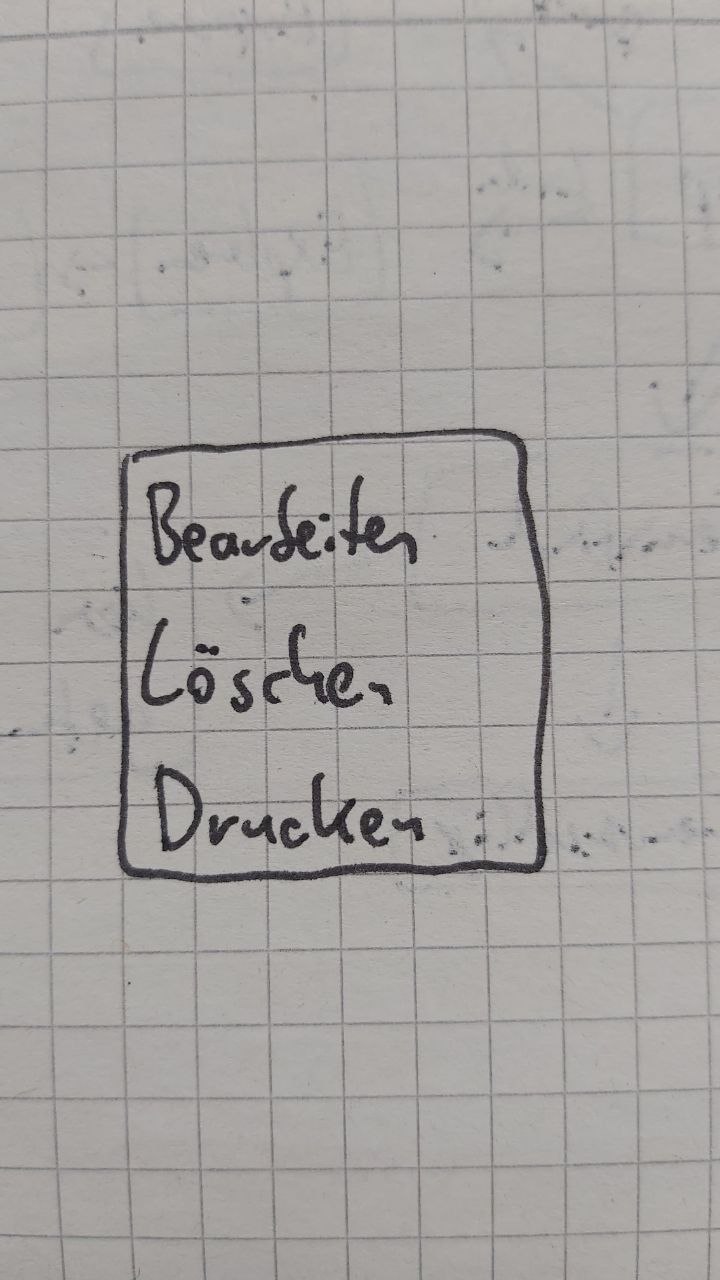 Bearbeiten
Löschen
Drucken